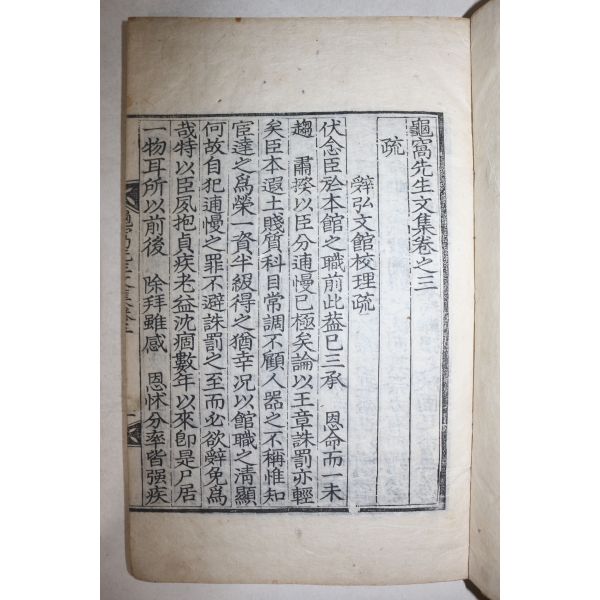 龜窩先生文集卷之三
疏
辤弘文館校理疏
伏念臣於本館之職前此葢已三承 恩命而一未
趨 肅揆以臣分逋慢已極矣論以王章誅罰亦輕
矣臣本遐土賤質科目常調不顧人器之不稱惟知
宦達之爲榮一資半級得之猶幸况以館職之淸顯
何故自犯逋慢之罪不避誅罰之至而必欲辤免爲
哉特以臣夙抱貞疾老益沈痼數年以來卽是尸居
一物耳所以前後 除拜雖感 恩怵分率皆强疾